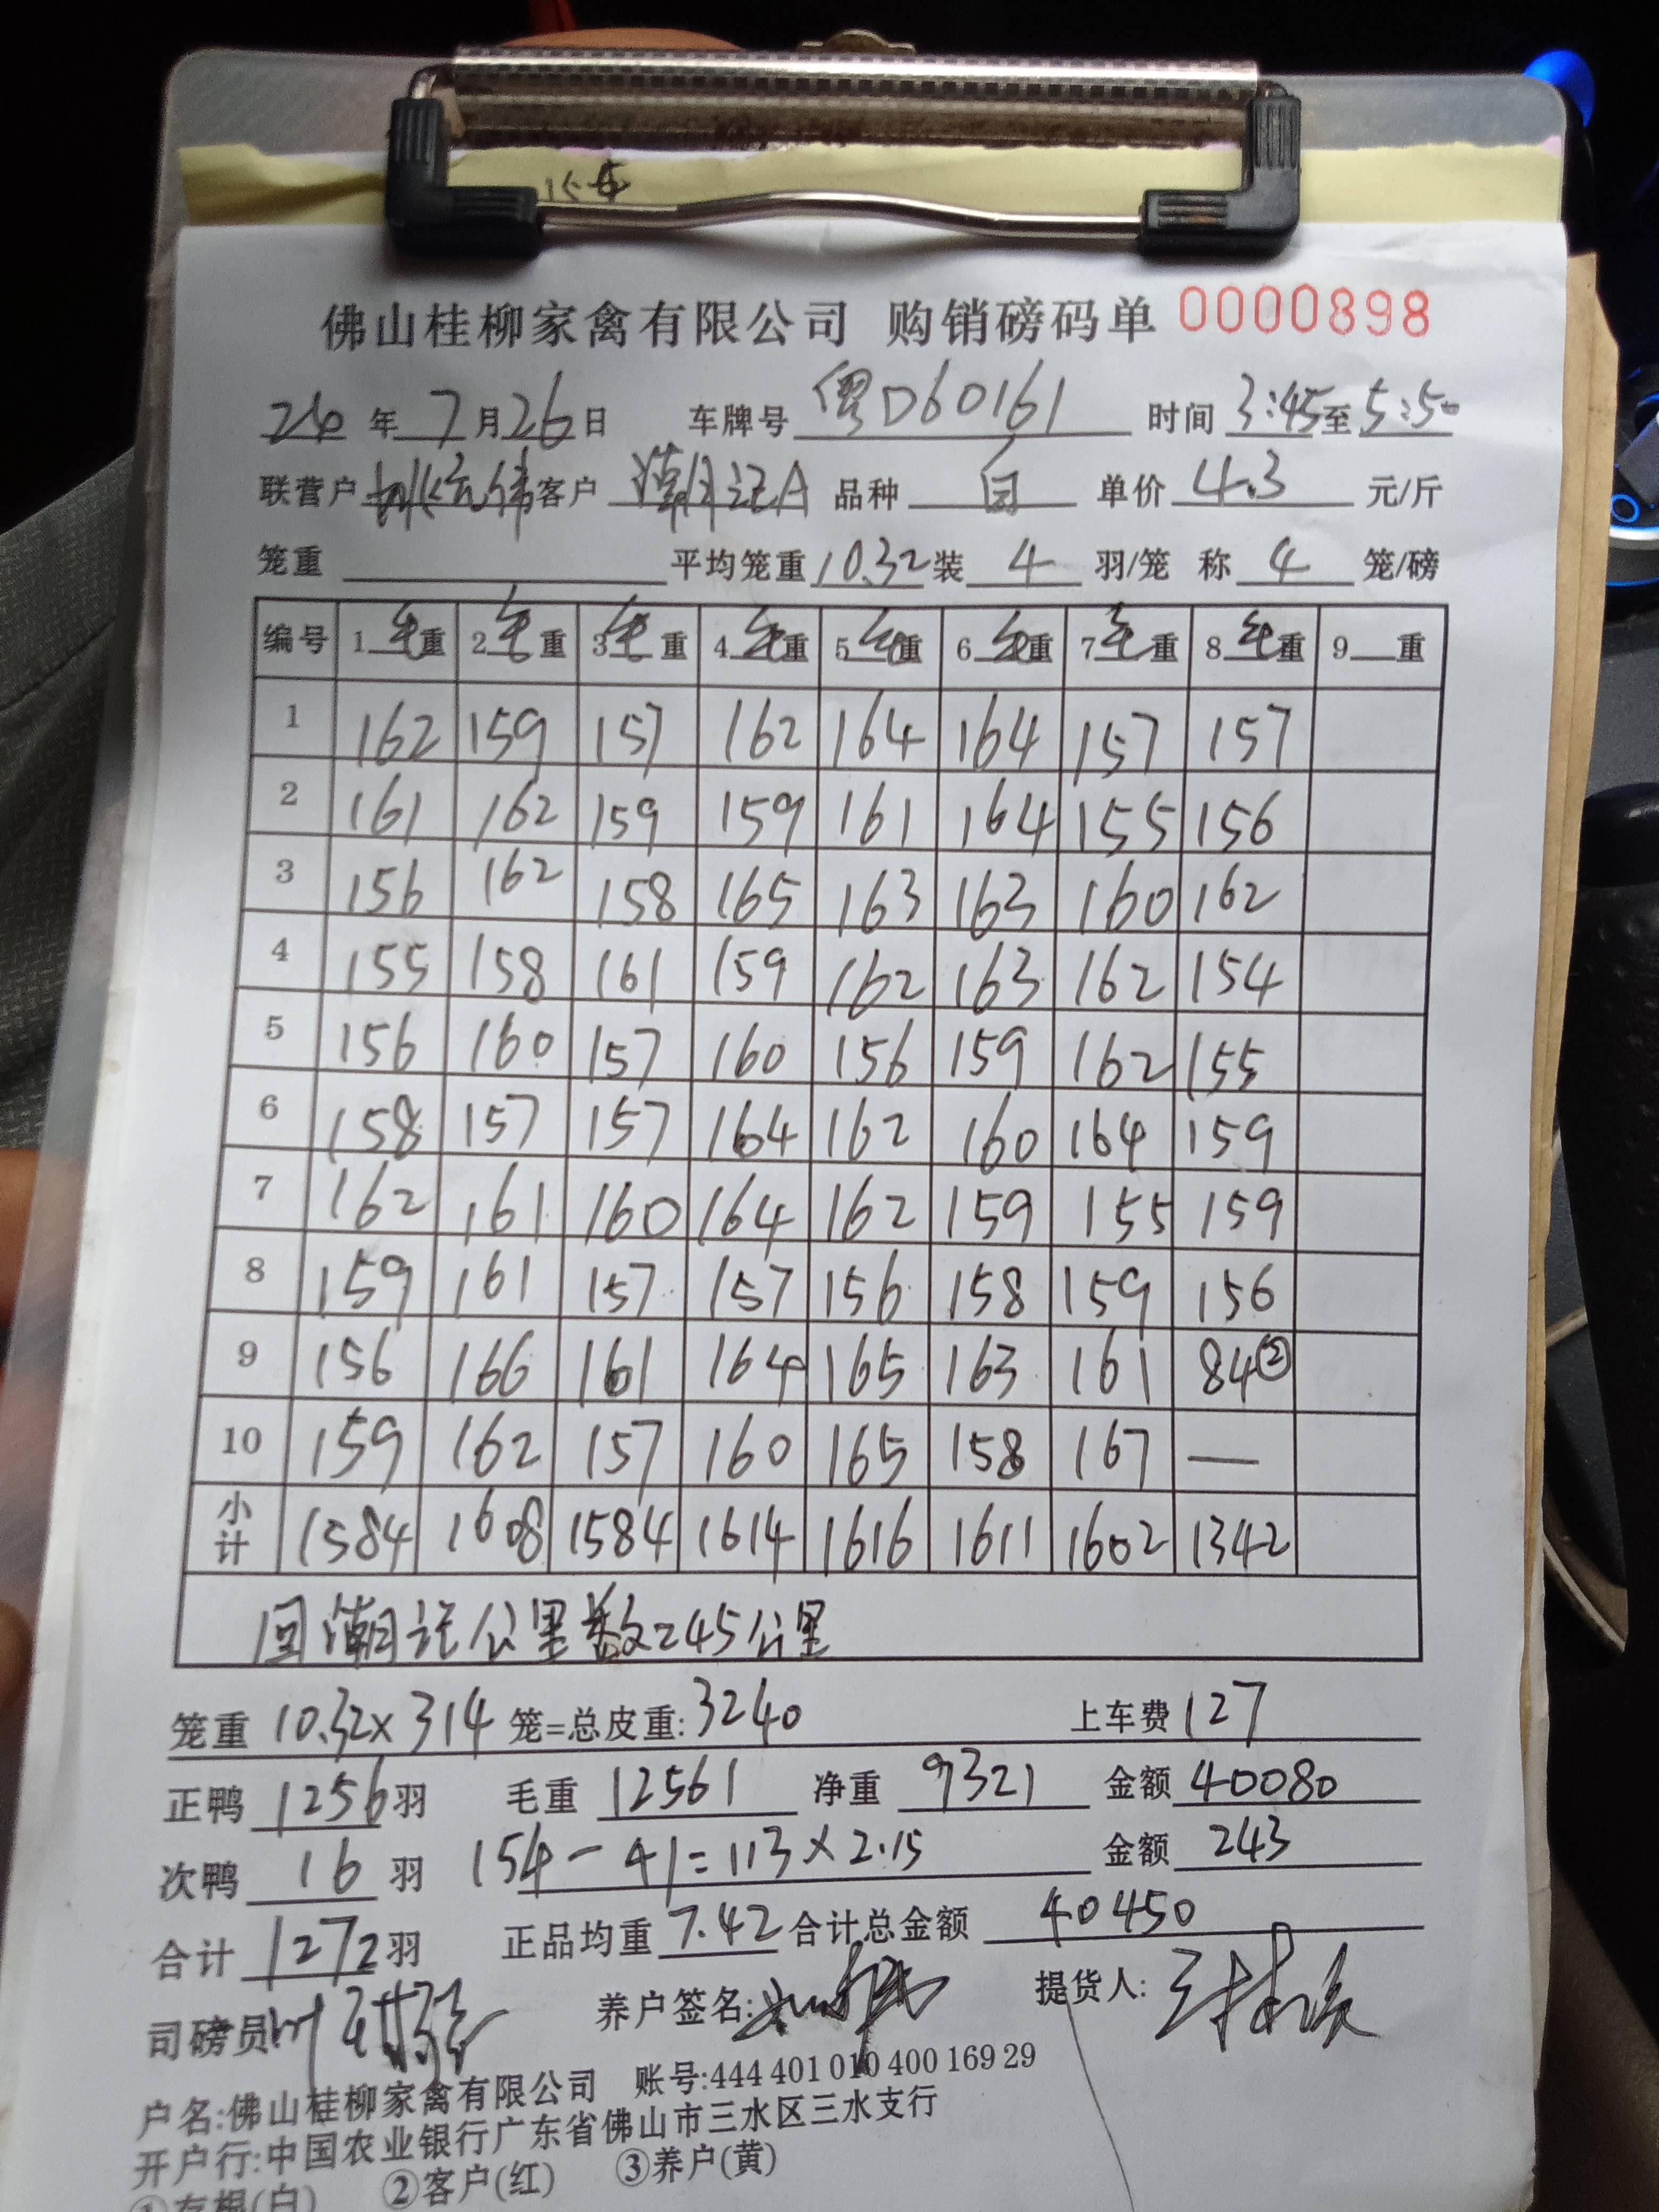 佛山桂柳家禽有限公司 购销磅码单 0000898
24年7月26日 车牌号 粤D60161 时间 3:45至5:50
联营户 客户 潮记A 品种 白 单价 4.3 元/斤
笼重 平均笼重 10.32 装 4 羽/笼 称 4 笼/磅
编号 1毛重 2毛重 3毛重 4毛重 5毛重 6毛重 7毛重 8毛重 9 重
1 162 159 157 162 164 164 157 157
2 161 162 159 159 161 164 155 156
3 156 162 158 165 163 163 160 162
4 155 158 161 159 162 163 162 154
5 156 160 157 160 156 159 162 155
6 158 157 157 164 162 160 164 159
7 162 161 160 164 162 159 155 159
8 159 161 157 157 156 158 159 156
9 156 166 161 164 165 163 161 84②
10 159 162 157 160 165 158 167 —
小计 1584 1608 1584 1614 1616 1611 1602 1342
回潮记公里数245公里
笼重 10.32×314 笼=总皮重:3240 上车费 127
正鸭 1256 羽 毛重 12561 净重 9321 金额 40080
次鸭 16 羽 154-41=113×2.15 金额 243
合计 1272 羽 正品均重 7.42 合计总金额 40450
司磅员 养户签名: 提货人:
户名:佛山桂柳家禽有限公司 账号:444 401 010 400 169 29
开户行:中国农业银行广东省佛山市三水区三水支行
①存根(白) ②客户(红) ③养户(黄)